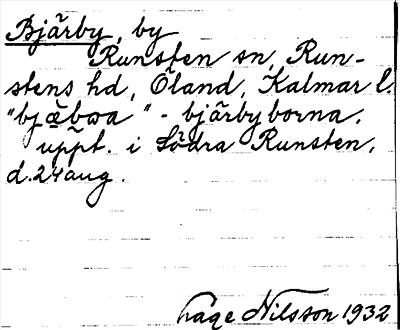 Bjärby, by
Runsten sn, Run-
stens hd, Öland, Kalmar l.
"bjäbwa" - bjärbyborna.
uppt. i Södra Runsten,
d. 24 aug.
Tage Nilsson 1932